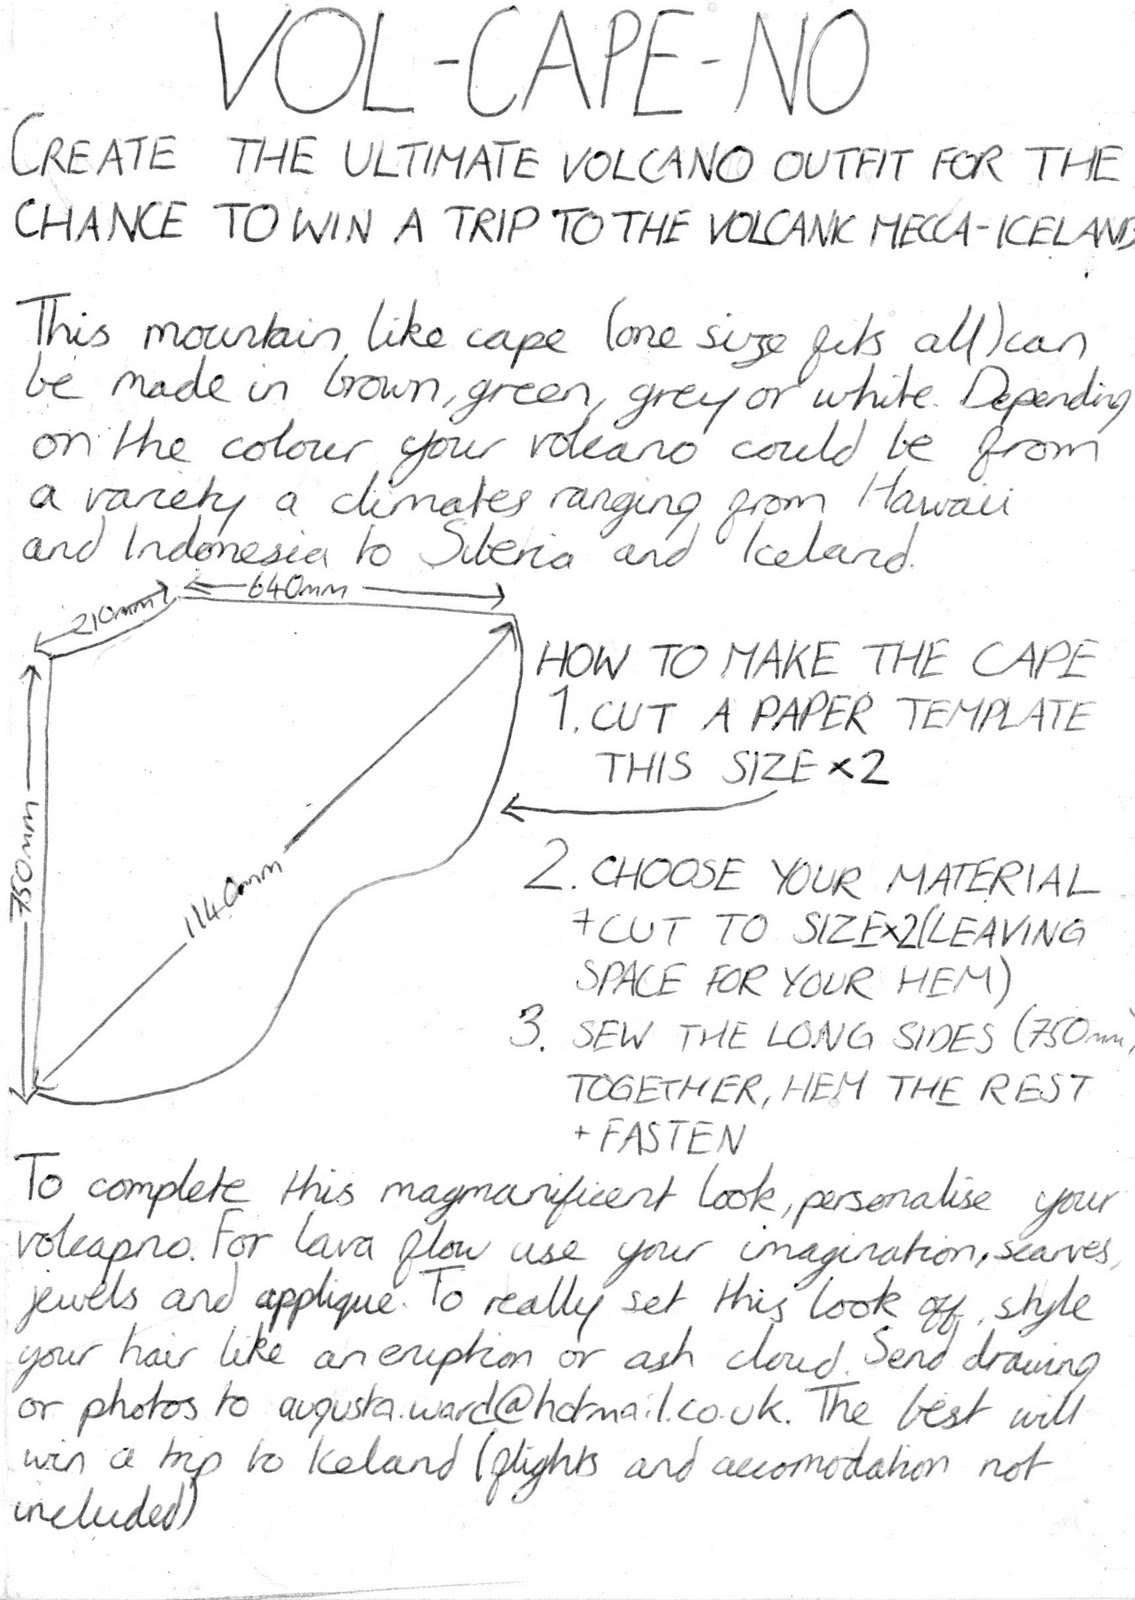 VOL-CAPE-NO
CREATE THE ULTIMATE VOLCANO OUTFIT FOR THE
CHANCE TO WIN A TRIP TO THE VOLCANIC MECCA-ICELAND
This mountain like cape (one size fits all) can
be made in brown, green, grey or white. Depending
on the colour your volcano could be from
a variety a climates ranging from Hawaii
and Indonesia to Siberia and Iceland.
640mm
210mm
750mm
1140mm
HOW TO MAKE THE CAPE
1. CUT A PAPER TEMPLATE
THIS SIZE x2
2. CHOOSE YOUR MATERIAL
+ CUT TO SIZE x2 (LEAVING
SPACE FOR YOUR HEM)
3. SEW THE LONG SIDES (750mm)
TOGETHER, HEM THE REST
+ FASTEN
To complete this magmanificent look, personalise your
volcapno. For lava flow use your imagination, scarves,
jewels and applique. To really set this look off, style
your hair like an eruption or ash cloud. Send drawing
or photos to augusta.ward@hotmail.co.uk. The best will
win a trip to Iceland (flights and accomodation not
included)